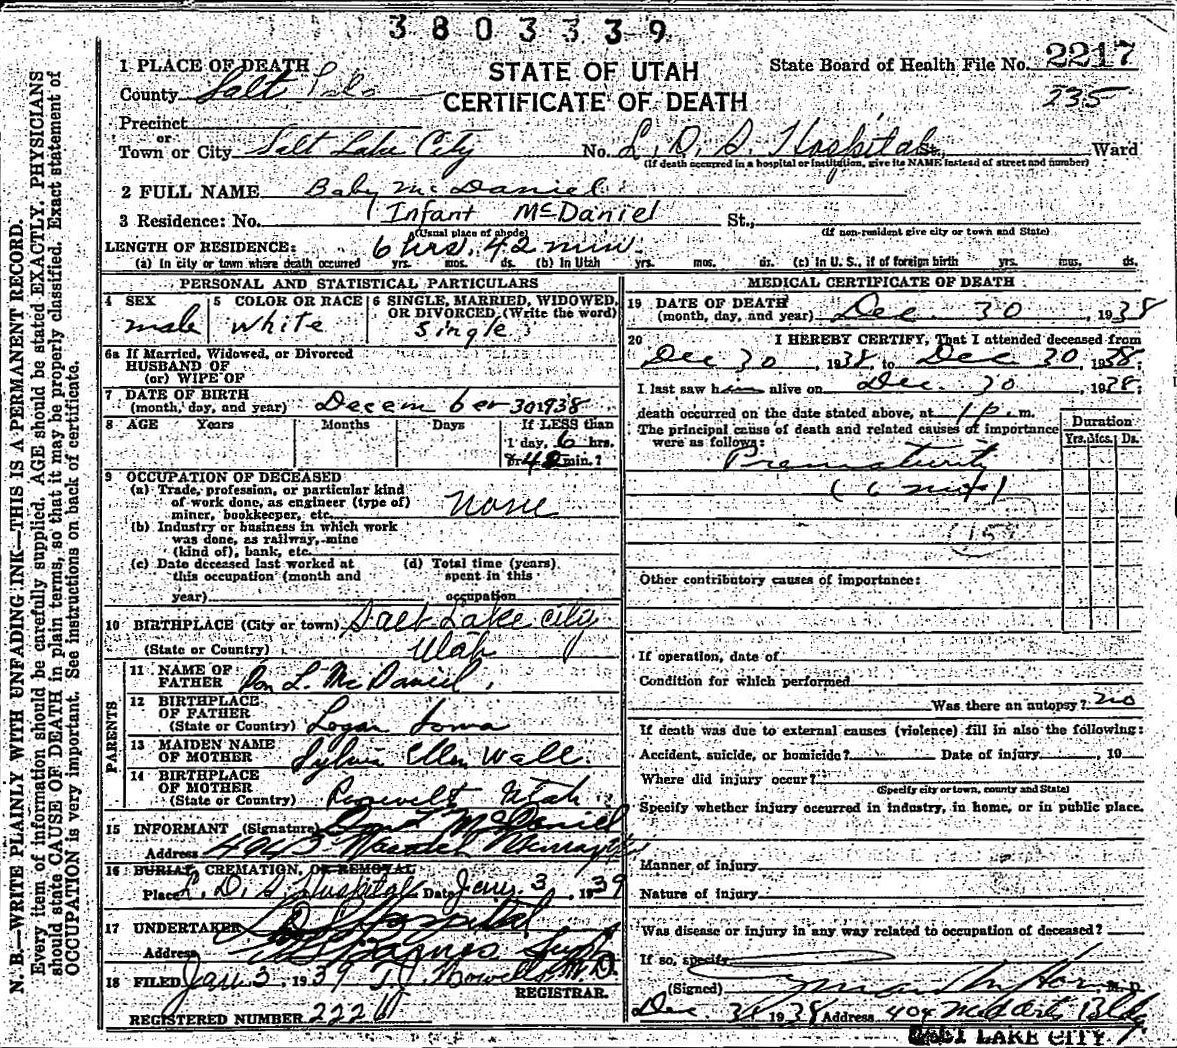 3803339
1 PLACE OF DEATH
STATE OF UTAH
State Board of Health File No. 2217
County Salt Lake
CERTIFICATE OF DEATH
235
Precinct
or
Town or City Salt Lake City No. L. D. S. Hospital St., Ward
(If death occurred in a hospital or institution, give its NAME instead of street and number)
2 FULL NAME Baby McDaniel
3 Residence: No. Infant McDaniel St.,
(Usual place of abode) (If non-resident give city or town and State)
LENGTH OF RESIDENCE: 6 hrs. 42 min.
(a) In city or town where death occurred yrs. mos. ds. (b) In Utah yrs. mos. ds. (c) In U. S., if of foreign birth yrs. mos. ds.
PERSONAL AND STATISTICAL PARTICULARS
4 SEX male
5 COLOR OR RACE White
6 SINGLE, MARRIED, WIDOWED, OR DIVORCED, (Write the word) Single
6a If Married, Widowed, or Divorced
HUSBAND OF
(or) WIFE OF
7 DATE OF BIRTH
(month, day, and year) December 30 1938
8 AGE Years Months Days If LESS than
1 day, 6 hrs.
or 42 min.?
9 OCCUPATION OF DECEASED
(a) Trade, profession, or particular kind
of work done, as engineer (type of)
miner, bookkeeper, etc. None
(b) Industry or business in which work
was done, as railway, mine
(kind of), bank, etc.
(c) Date deceased last worked at
this occupation (month and
year)
(d) Total time (years)
spent in this
occupation
10 BIRTHPLACE (City or town) Salt Lake City
(State or Country) Utah
PARENTS
11 NAME OF
FATHER Don L. McDaniel
12 BIRTHPLACE
OF FATHER
(State or Country) Logan Iowa
13 MAIDEN NAME
OF MOTHER Sylvia Ellen Wall
14 BIRTHPLACE
OF MOTHER
(State or Country) Roosevelt Utah
15 INFORMANT (Signature) Don L. McDaniel
Address Murray
16 BURIAL, CREMATION, OR REMOVAL
Place L. D. S. Hospital Date Jan. 3, 1939
17 UNDERTAKER L D S Hospital
Address
18 FILED Jan 3, 1939 T. J. Howells M. D.
REGISTRAR.
REGISTERED NUMBER
MEDICAL CERTIFICATE OF DEATH
19 DATE OF DEATH
(month, day, and year) Dec. 30, 1938
20 I HEREBY CERTIFY, That I attended deceased from
Dec 30, 1938, to Dec 30 1938
I last saw him alive on Dec. 30, 1938
death occurred on the date stated above, at 1 p. m.
The principal cause of death and related causes of importance
were as follows:
Duration
Yrs. Mos. Ds.
Prematurity
Other contributory causes of importance:
If operation, date of
Condition for which performed
Was there an autopsy? no
If death was due to external causes (violence) fill in also the following:
Accident, suicide, or homicide? Date of injury, 19
Where did injury occur?
(Specify city or town, county and State)
Specify whether injury occurred in industry, in home, or in public place.
Manner of injury
Nature of injury
Was disease or injury in any way related to occupation of deceased?
If so, specify
(Signed) M. D.
Dec. 1938 Address 404 Med Arts Bldg
LAKE CITY
N. B.—WRITE PLAINLY WITH UNFADING INK—THIS IS A PERMANENT RECORD.
Every item of information should be carefully supplied. AGE should be stated EXACTLY. PHYSICIANS
should state CAUSE OF DEATH in plain terms, so that it may be properly classified. Exact statement of
OCCUPATION is very important. See instructions on back of certificate.